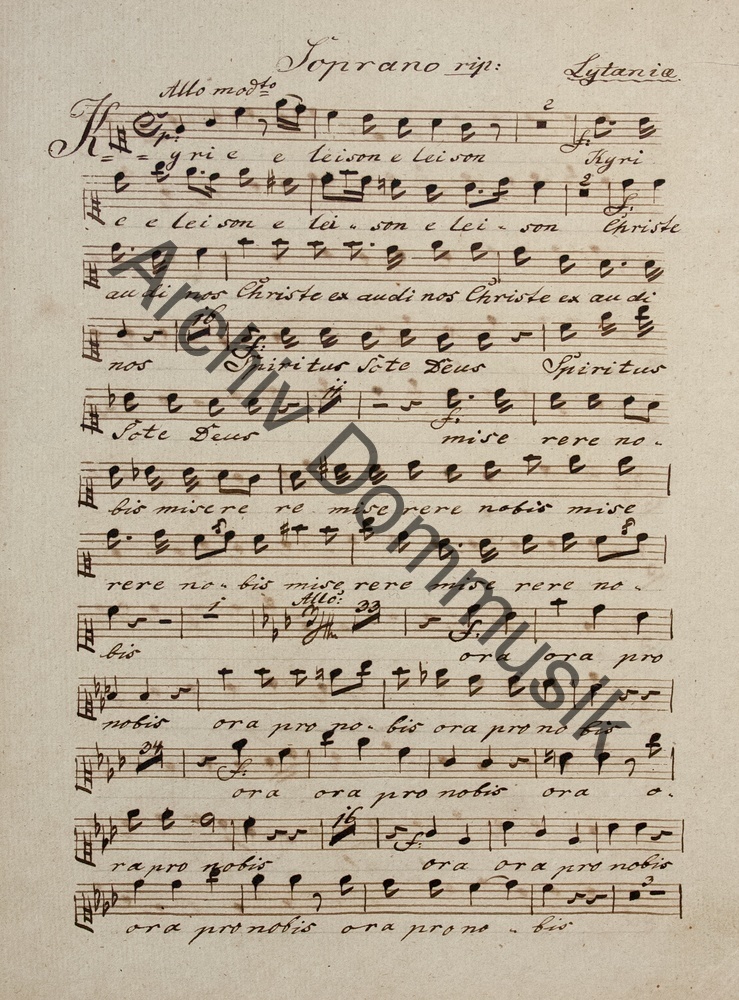 Soprano rip: Lytaniæ
Allo modto
2
p: f:
Kyri e e leison e leison Kyri
2
f:
e e lei son e lei - son e lei - son Christe
au di nos Christe ex audi nos Christe ex au di
16
f:
nos Spiritus Scte Deus Spiritus
11
f:
Scte Deus mise rere no -
bis misere re mise rere nobis mise
rere no - bis mise rere mise rere no -
1 Allo: 33
f:
bis ora ora pro
nobis ora pro no - bis ora pro no bis
34
f:
ora ora pro nobis ora o -
16
f:
ra pro nobis ora ora pro nobis
3
ora pro nobis ora pro no - bis
Archiv Dommusik